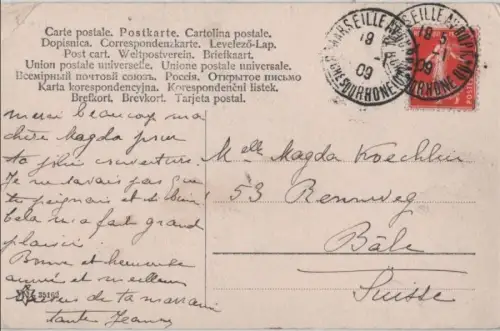 Carte postale. Postkarte. Cartolina postale.
Dopisnica. Correspondenzkarte. Levelező-Lap.
Post cart. Weltpostverein. Briefkaart.
Union postale universelle. Unione postale universale.
Всемірный почтовой союзъ. Россія. Открытое письмо
Karta korespondencyjna. Korespondenční listek.
Brefkort. Brevkort. Tarjeta postal.
MARSEILLE
19
09
MARSEILLE
19
09
merci beaucoup ma
chère Magda pour
ta jolie couverture.
Je ne savais pas que
tu peignais et si bien
Cela m'a fait grand
plaisir.
Bonne et heureuse
année et meilleurs
de ta marraine
tante Jeanne
Melle Magda Koechlin
53 Rennweg
Bâle
Suisse